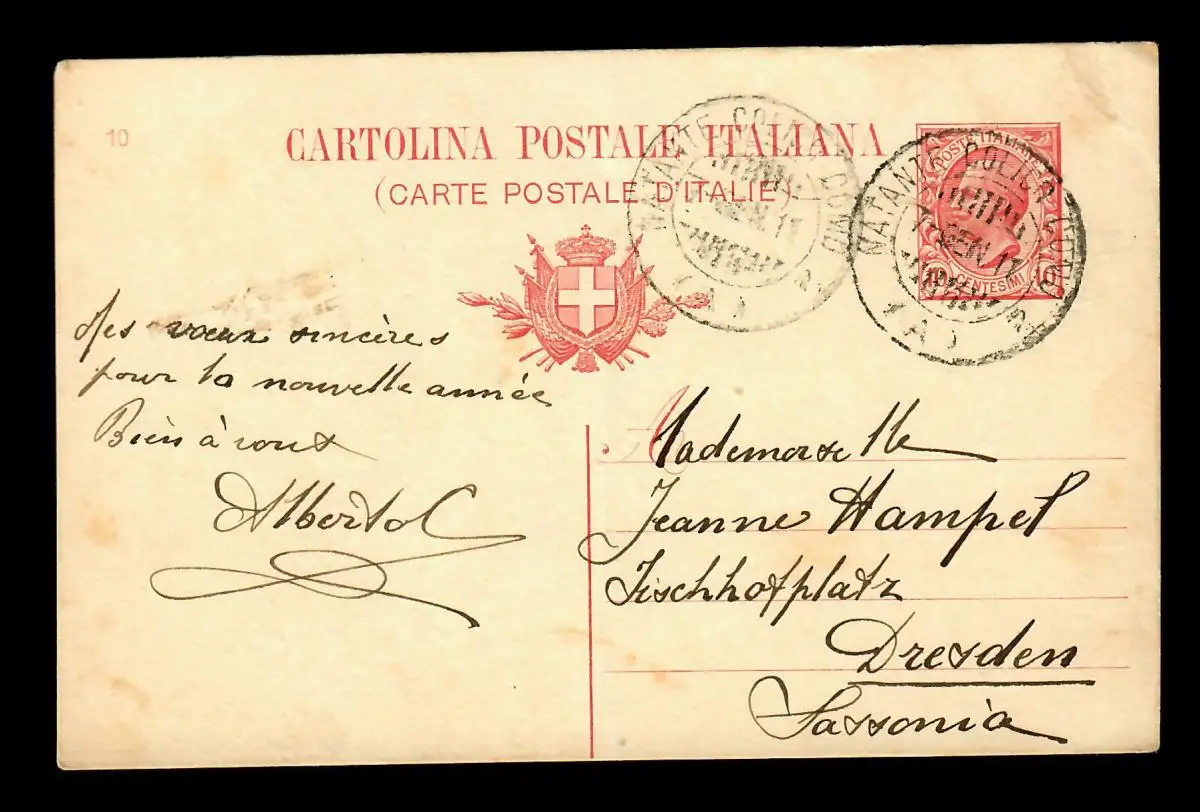 10
CARTOLINA POSTALE ITALIANA
(CARTE POSTALE D'ITALIE)
NATANTE COLICO COMO
GEN. 11
(A)
POSTE ITALIANE
10 CENTESIMI 10
NATANTE COLICO COMO
GEN. 11
(A)
Mes vœux sincères
pour la nouvelle année
Bien à vous
Alberto C
Mademoiselle
Jeanne Hampel
Fischhofplatz
Dresden
Sassonia